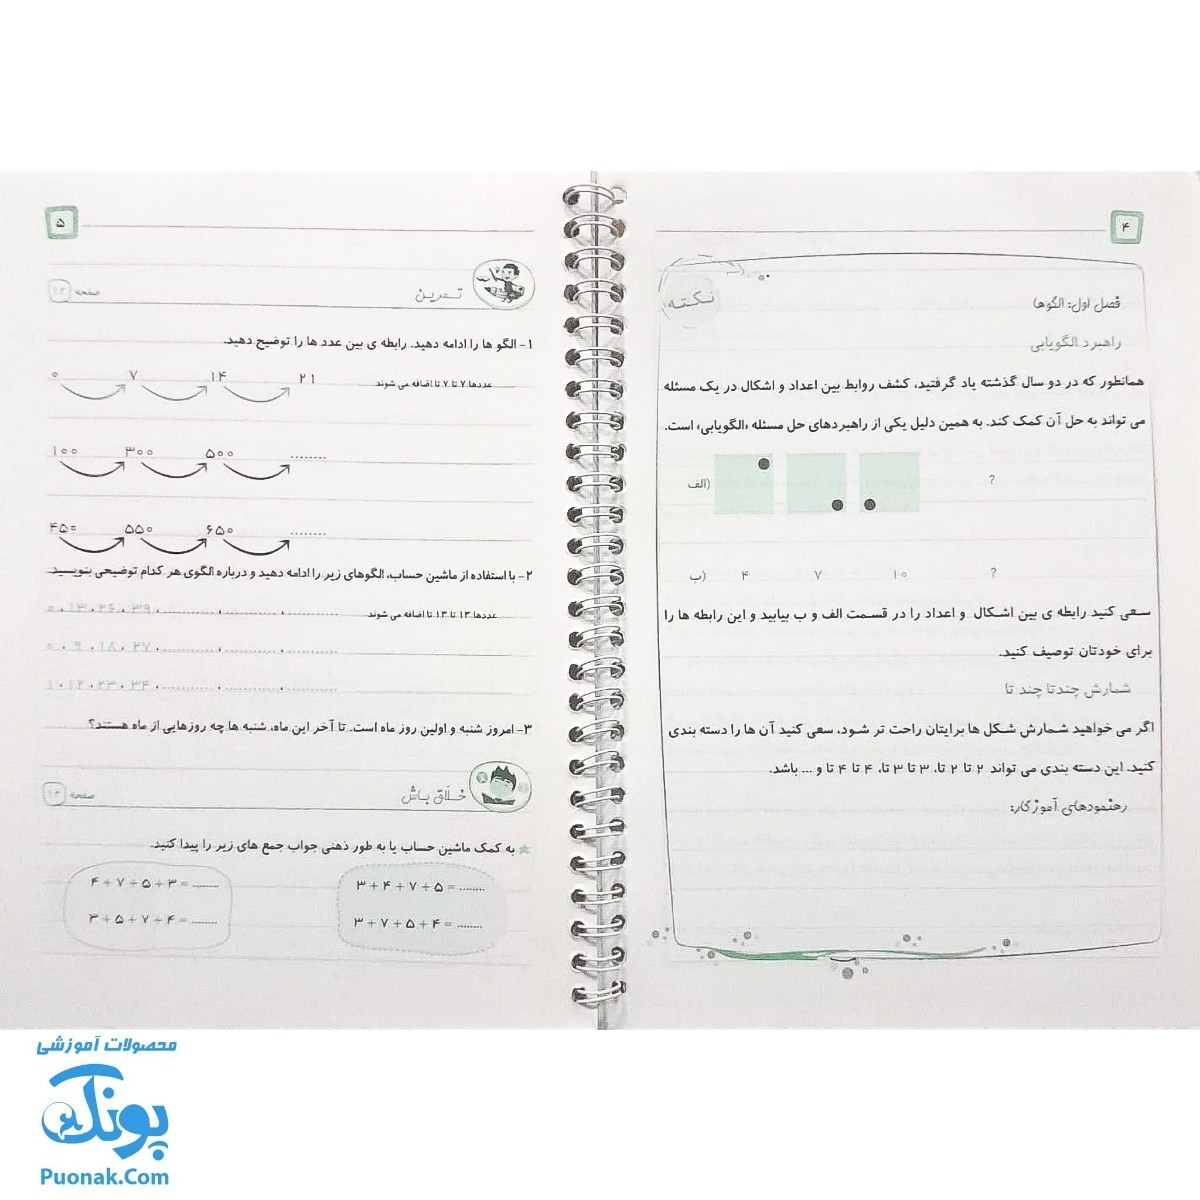 ۴
نکته
فصل اول: الگوها
راهبرد الگویابی
همانطور که در دو سال گذشته یاد گرفتید، کشف روابط بین اعداد و اشکال در یک مسئله
می تواند به حل آن کمک کند. به همین دلیل یکی از راهبردهای حل مسئله «الگویابی» است.
الف) ?
ب) ۴ ۷ ۱۰ ?
سعی کنید رابطه ی بین اشکال و اعداد را در قسمت الف و ب بیابید و این رابطه ها را
برای خودتان توصیف کنید.
شمارش چندتا چند تا
اگر می خواهید شمارش شکل ها برایتان راحت تر شود، سعی کنید آن ها را دسته بندی
کنید. این دسته بندی می تواند ۲ تا ۲ تا، ۳ تا ۳ تا، ۴ تا ۴ تا و ... باشد.
رهنمودهای آموزگار:
۵
تمرین
صفحه ۱۲
۱- الگو ها را ادامه دهید. رابطه ی بین عدد ها را توضیح دهید.
۰ ۷ ۱۴ ۲۱ عددها ۷ تا ۷ تا اضافه می شوند
۱۰۰ ۳۰۰ ۵۰۰ ........
۴۵۰ ۵۵۰ ۶۵۰ ........
۲- با استفاده از ماشین حساب، الگوهای زیر را ادامه دهید و درباره الگوی هر کدام توضیحی بنویسید
۰ ، ۱۳ ، ۲۶ ، ۳۹ ، ............. ، ............. ، ............. عددها ۱۳ تا ۱۳ تا اضافه می شوند
۰ ، ۹ ، ۱۸ ، ۲۷ ، ............. ، ............. ، .............
۱ ، ۱۲ ، ۲۳ ، ۳۴ ، ............. ، ............. ، .............
۳- امروز شنبه و اولین روز ماه است. تا آخر این ماه، شنبه ها چه روزهایی از ماه هستند؟
خلاق باش
صفحه
به کمک ماشین حساب یا به طور ذهنی جواب جمع های زیر را پیدا کنید.
۴ + ۷ + ۵ + ۳ = ........ ۳ + ۴ + ۷ + ۵ = ........
۳ + ۵ + ۷ + ۴ = ........ ۳ + ۷ + ۵ + ۴ = ........
محصولات آموزشی
پونک
Puonak.Com